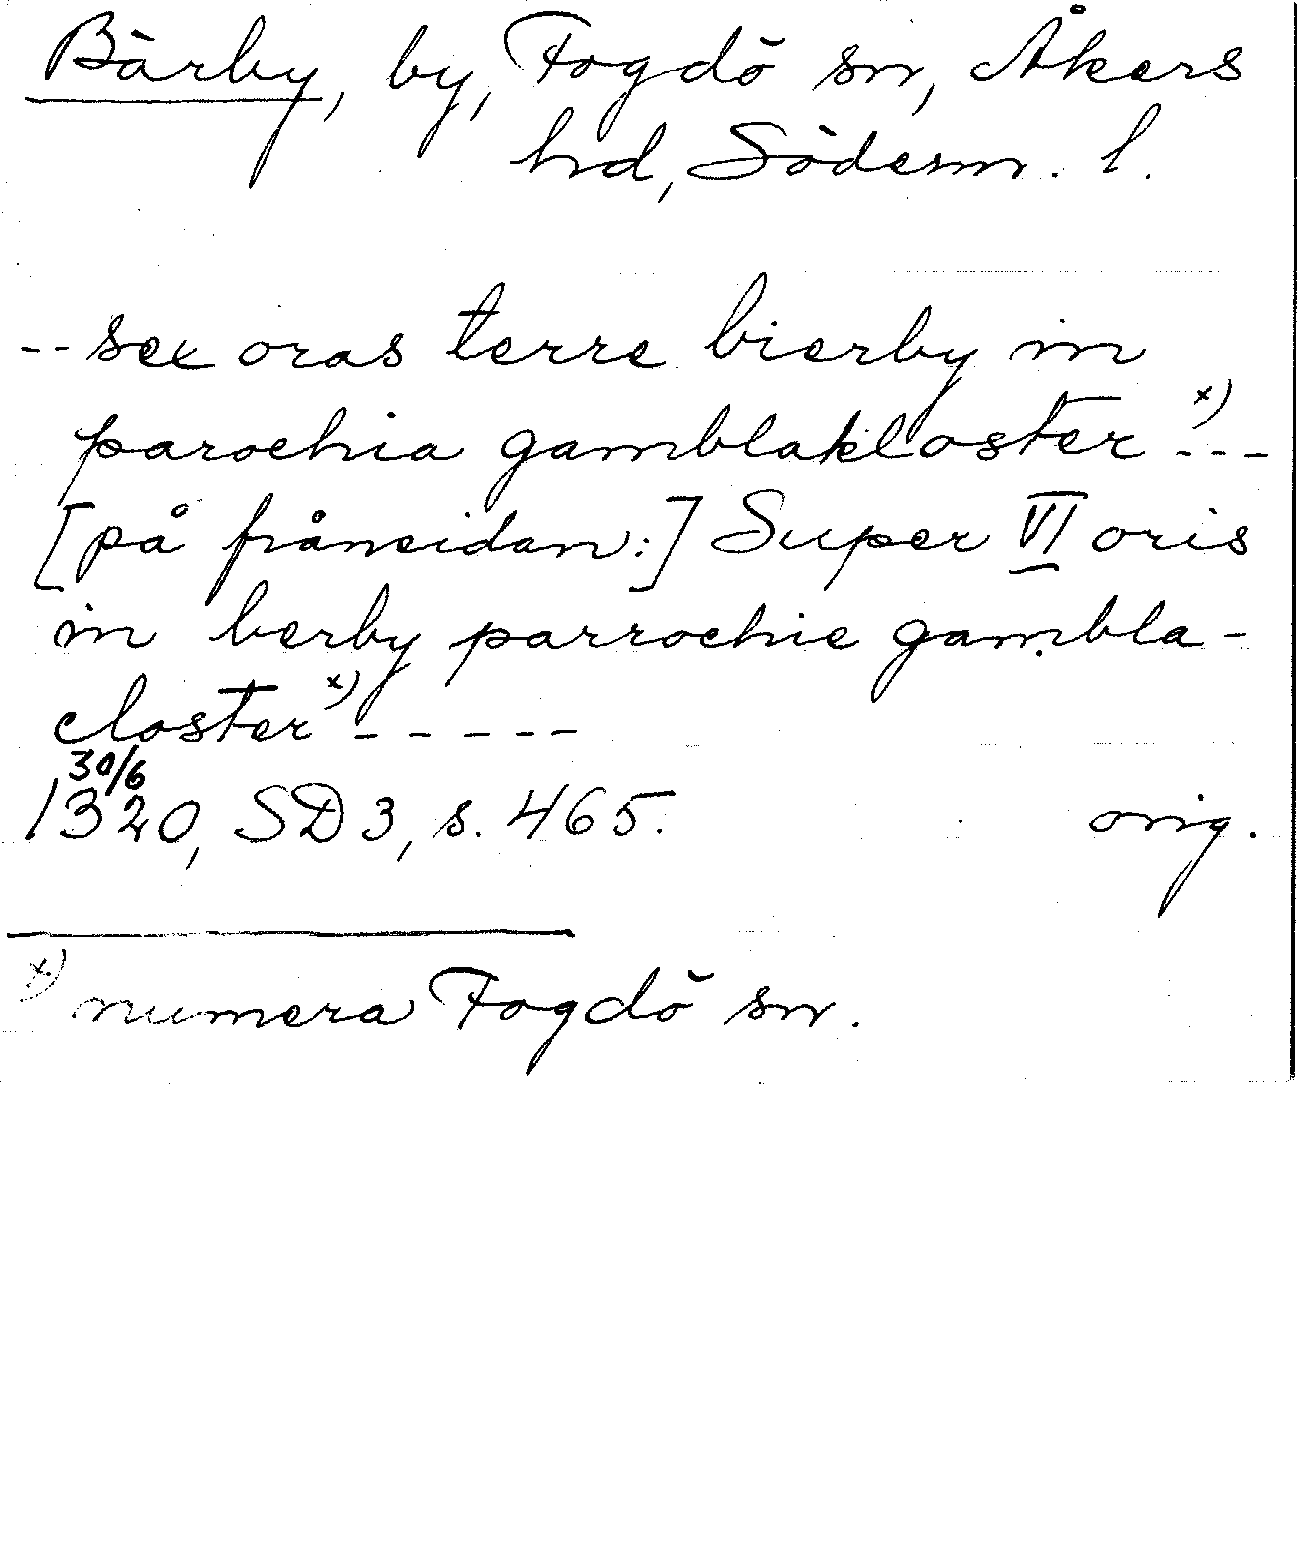 Bärby, by, Fogdö sn, Åkers
hd, Söderm. l.
-- sex oras terre bierby in
parochia gamblakloster x) ---
[på frånsidan:] Super VI oris
in berby parrochie gambla-
closter x) -----
30/6
1320, SD 3, s. 465. orig.
x) numera Fogdö sn.